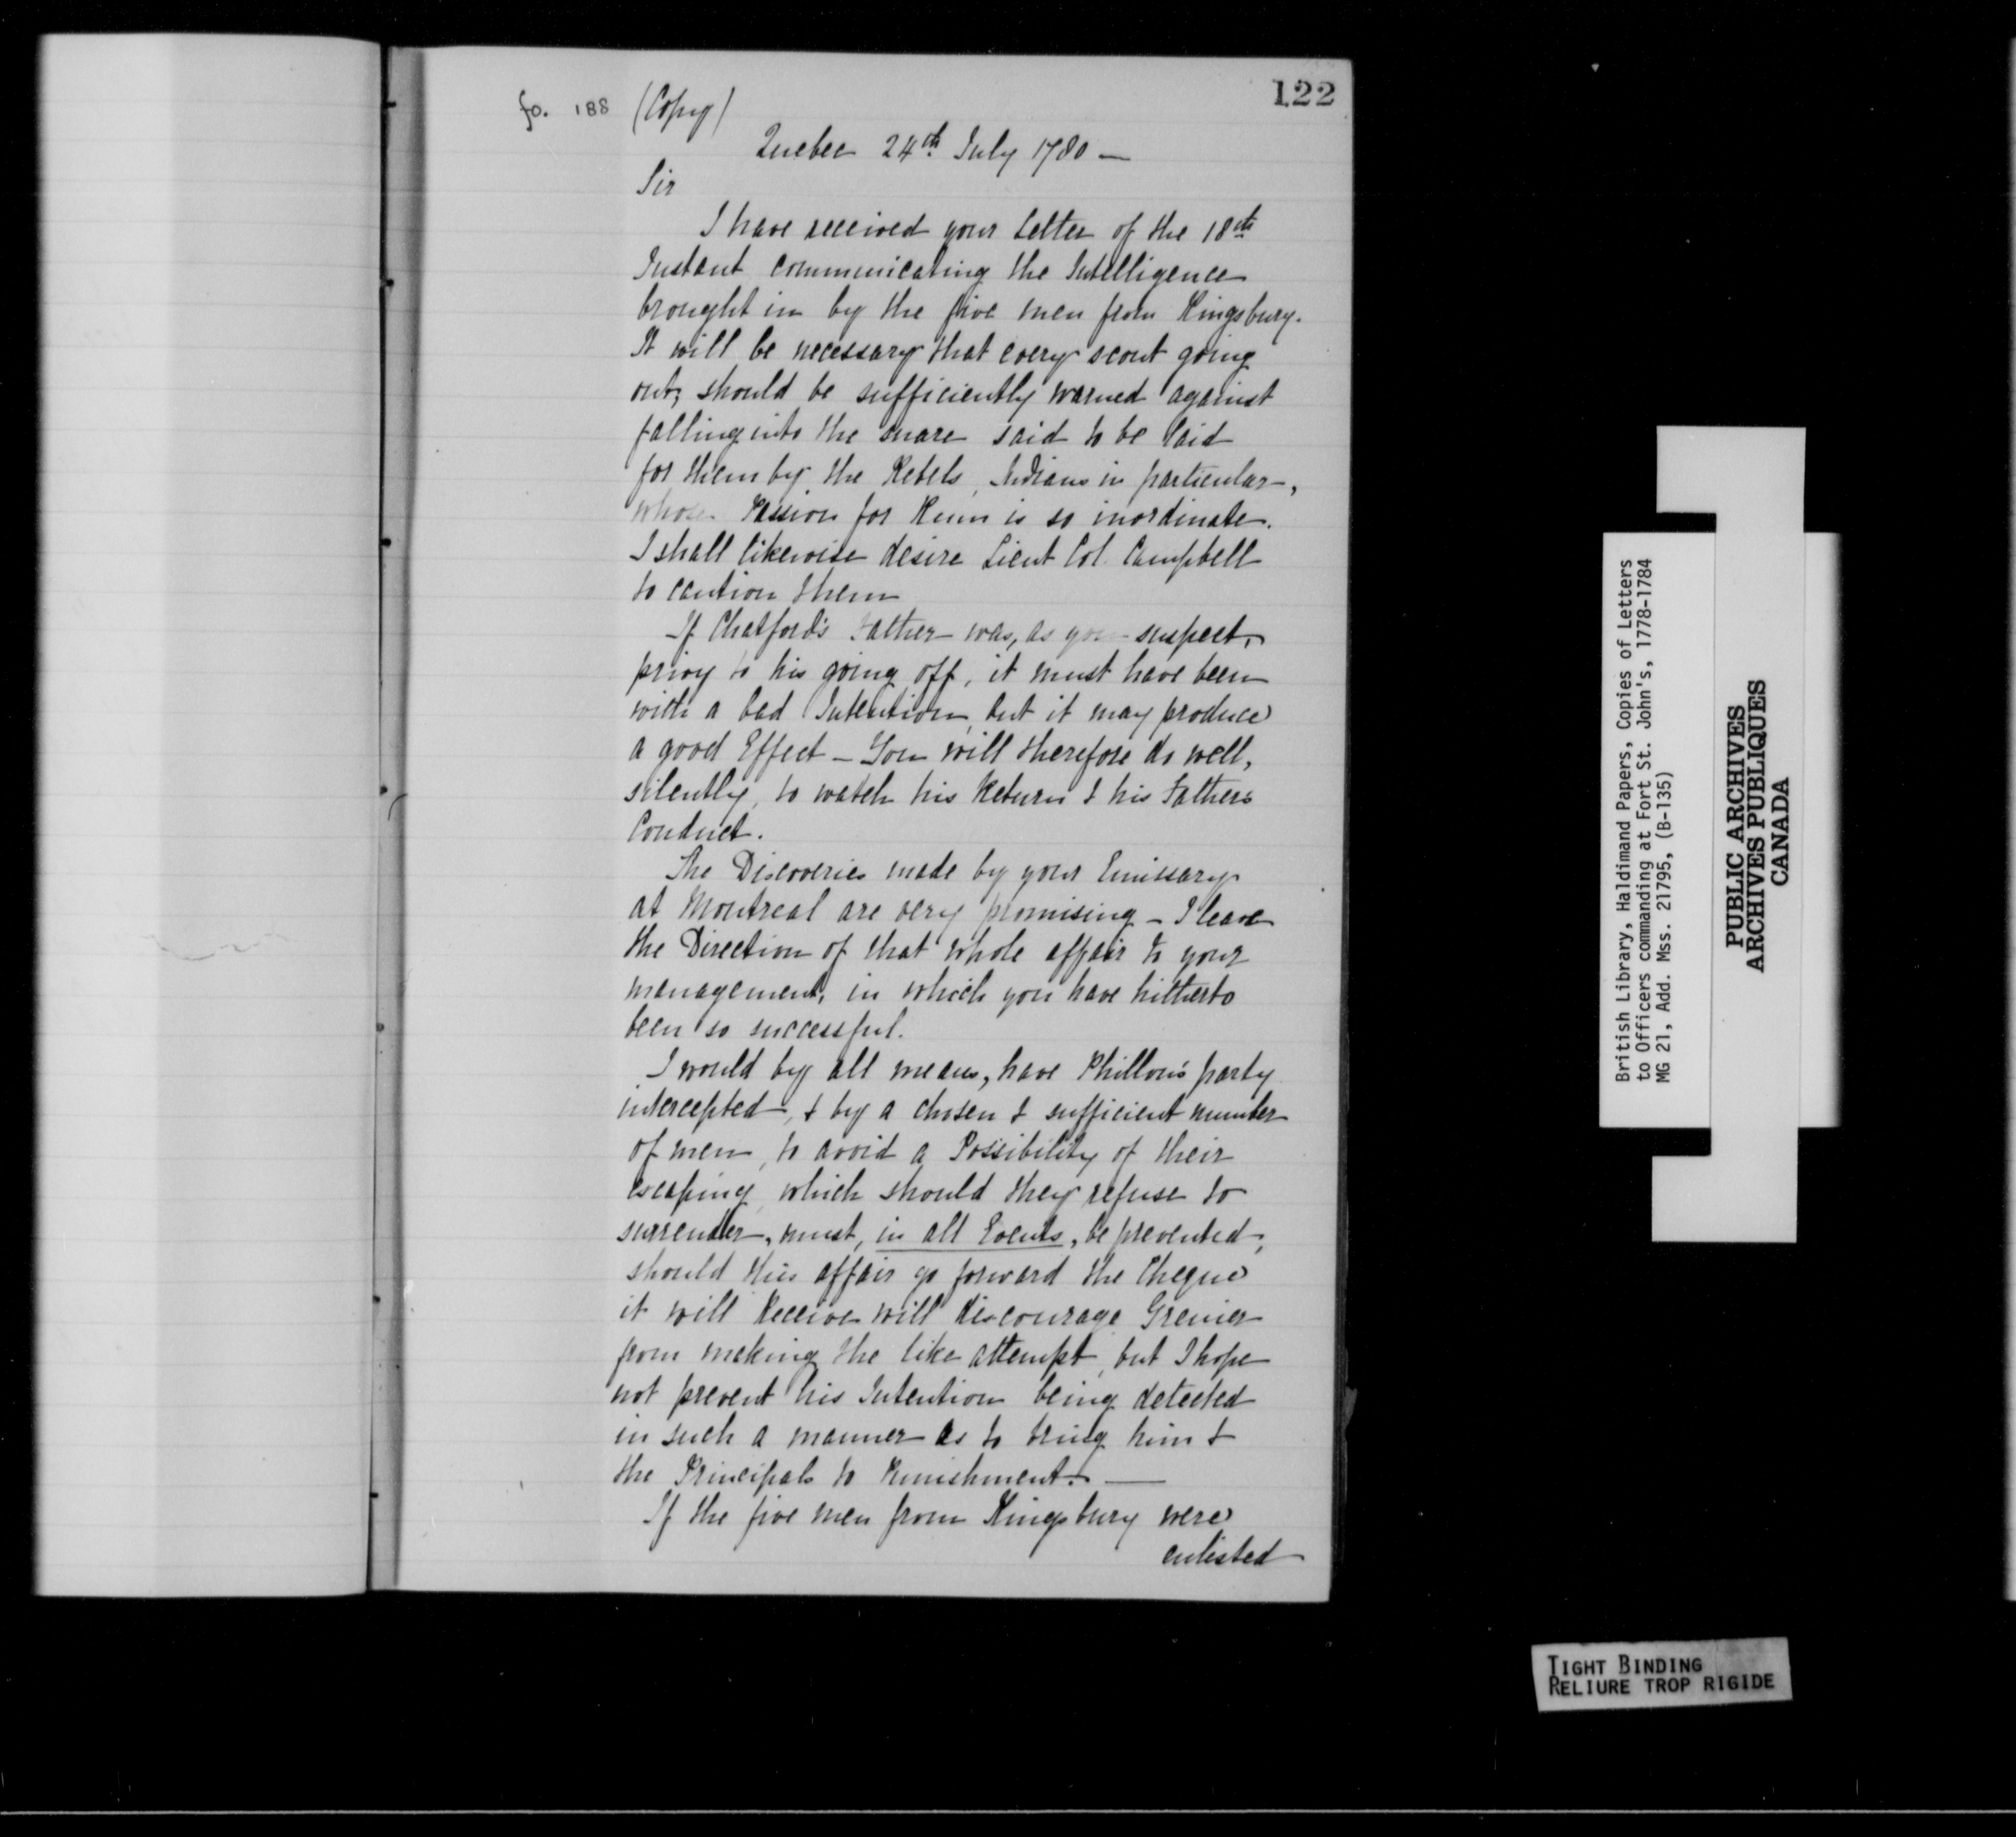 122
fo. 188 (Copy)
Quebec 24th July 1780 —
Sir
I have received your Letter of the 18th
Instant communicating the Intelligence
brought in by the five men from Kingsbury.
It will be necessary that every scout going
out, should be sufficiently warned against
falling into the snare said to be laid
for them by the Rebels, Indians in particular,
whose Passion for Rum is so inordinate.
I shall likewise desire Lieut Col. Campbell
to caution them
If Chatford's Father was, as you suspect,
privy to his going off, it must have been
with a bad Intention, but it may produce
a good Effect — You will therefore do well,
silently, to watch his Return & his Father's
Conduct.
The Discoveries made by your Emissary
at Montreal are very promising — I leave
the Direction of that whole affair to your
management, in which you have hitherto
been so successful.
I would by all means, have Phillon's party
intercepted, & by a chosen & sufficient number
of men, to avoid a Possibility of their
escaping, which should they refuse to
surrender, must, in all Events, be prevented,
should this affair go forward the Cheque
it will Receive will discourage Grenier
from making the like attempt, but I hope
not prevent his Intention being detected
in such a manner as to bring him &
the Principals to Punishment. —
If the five men from Kingsbury were
enlisted
British Library, Haldimand Papers, Copies of Letters
to Officers commanding at Fort St. John's, 1778-1784
MG 21, Add. Mss. 21795, (B-135)
PUBLIC ARCHIVES
ARCHIVES PUBLIQUES
CANADA
TIGHT BINDING
RELIURE TROP RIGIDE